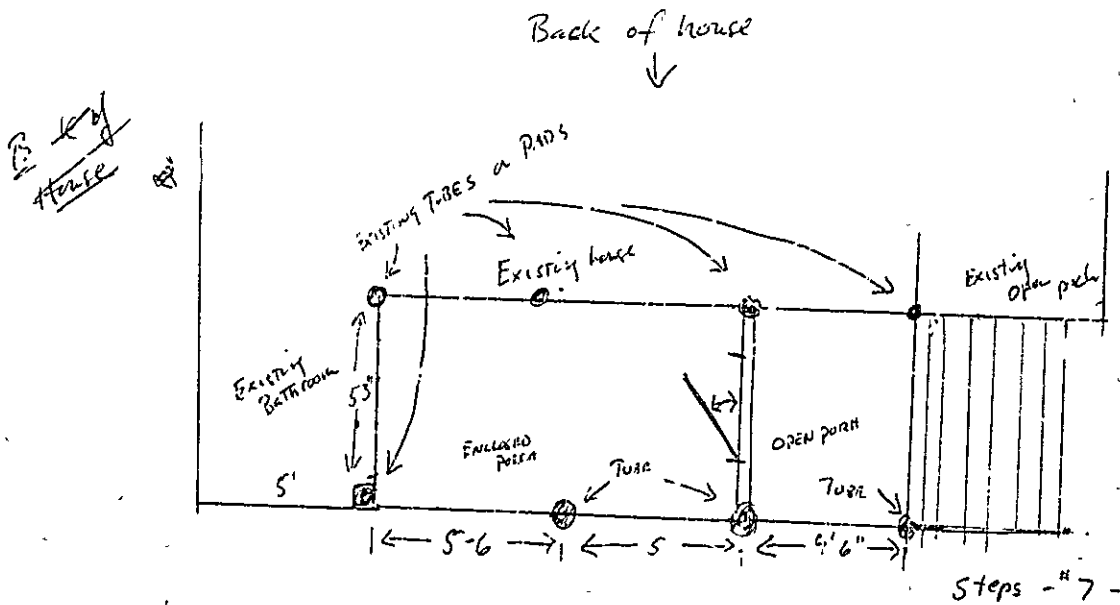 Back of house
House
EXISTING TUBES or PADS
Existing house
Existing
Open porch
Existing
Bathroom
53"
ENCLOSED
OPEN PORH
TUBE
TUBE
5'
5-6
5
6"
Steps - #7 -